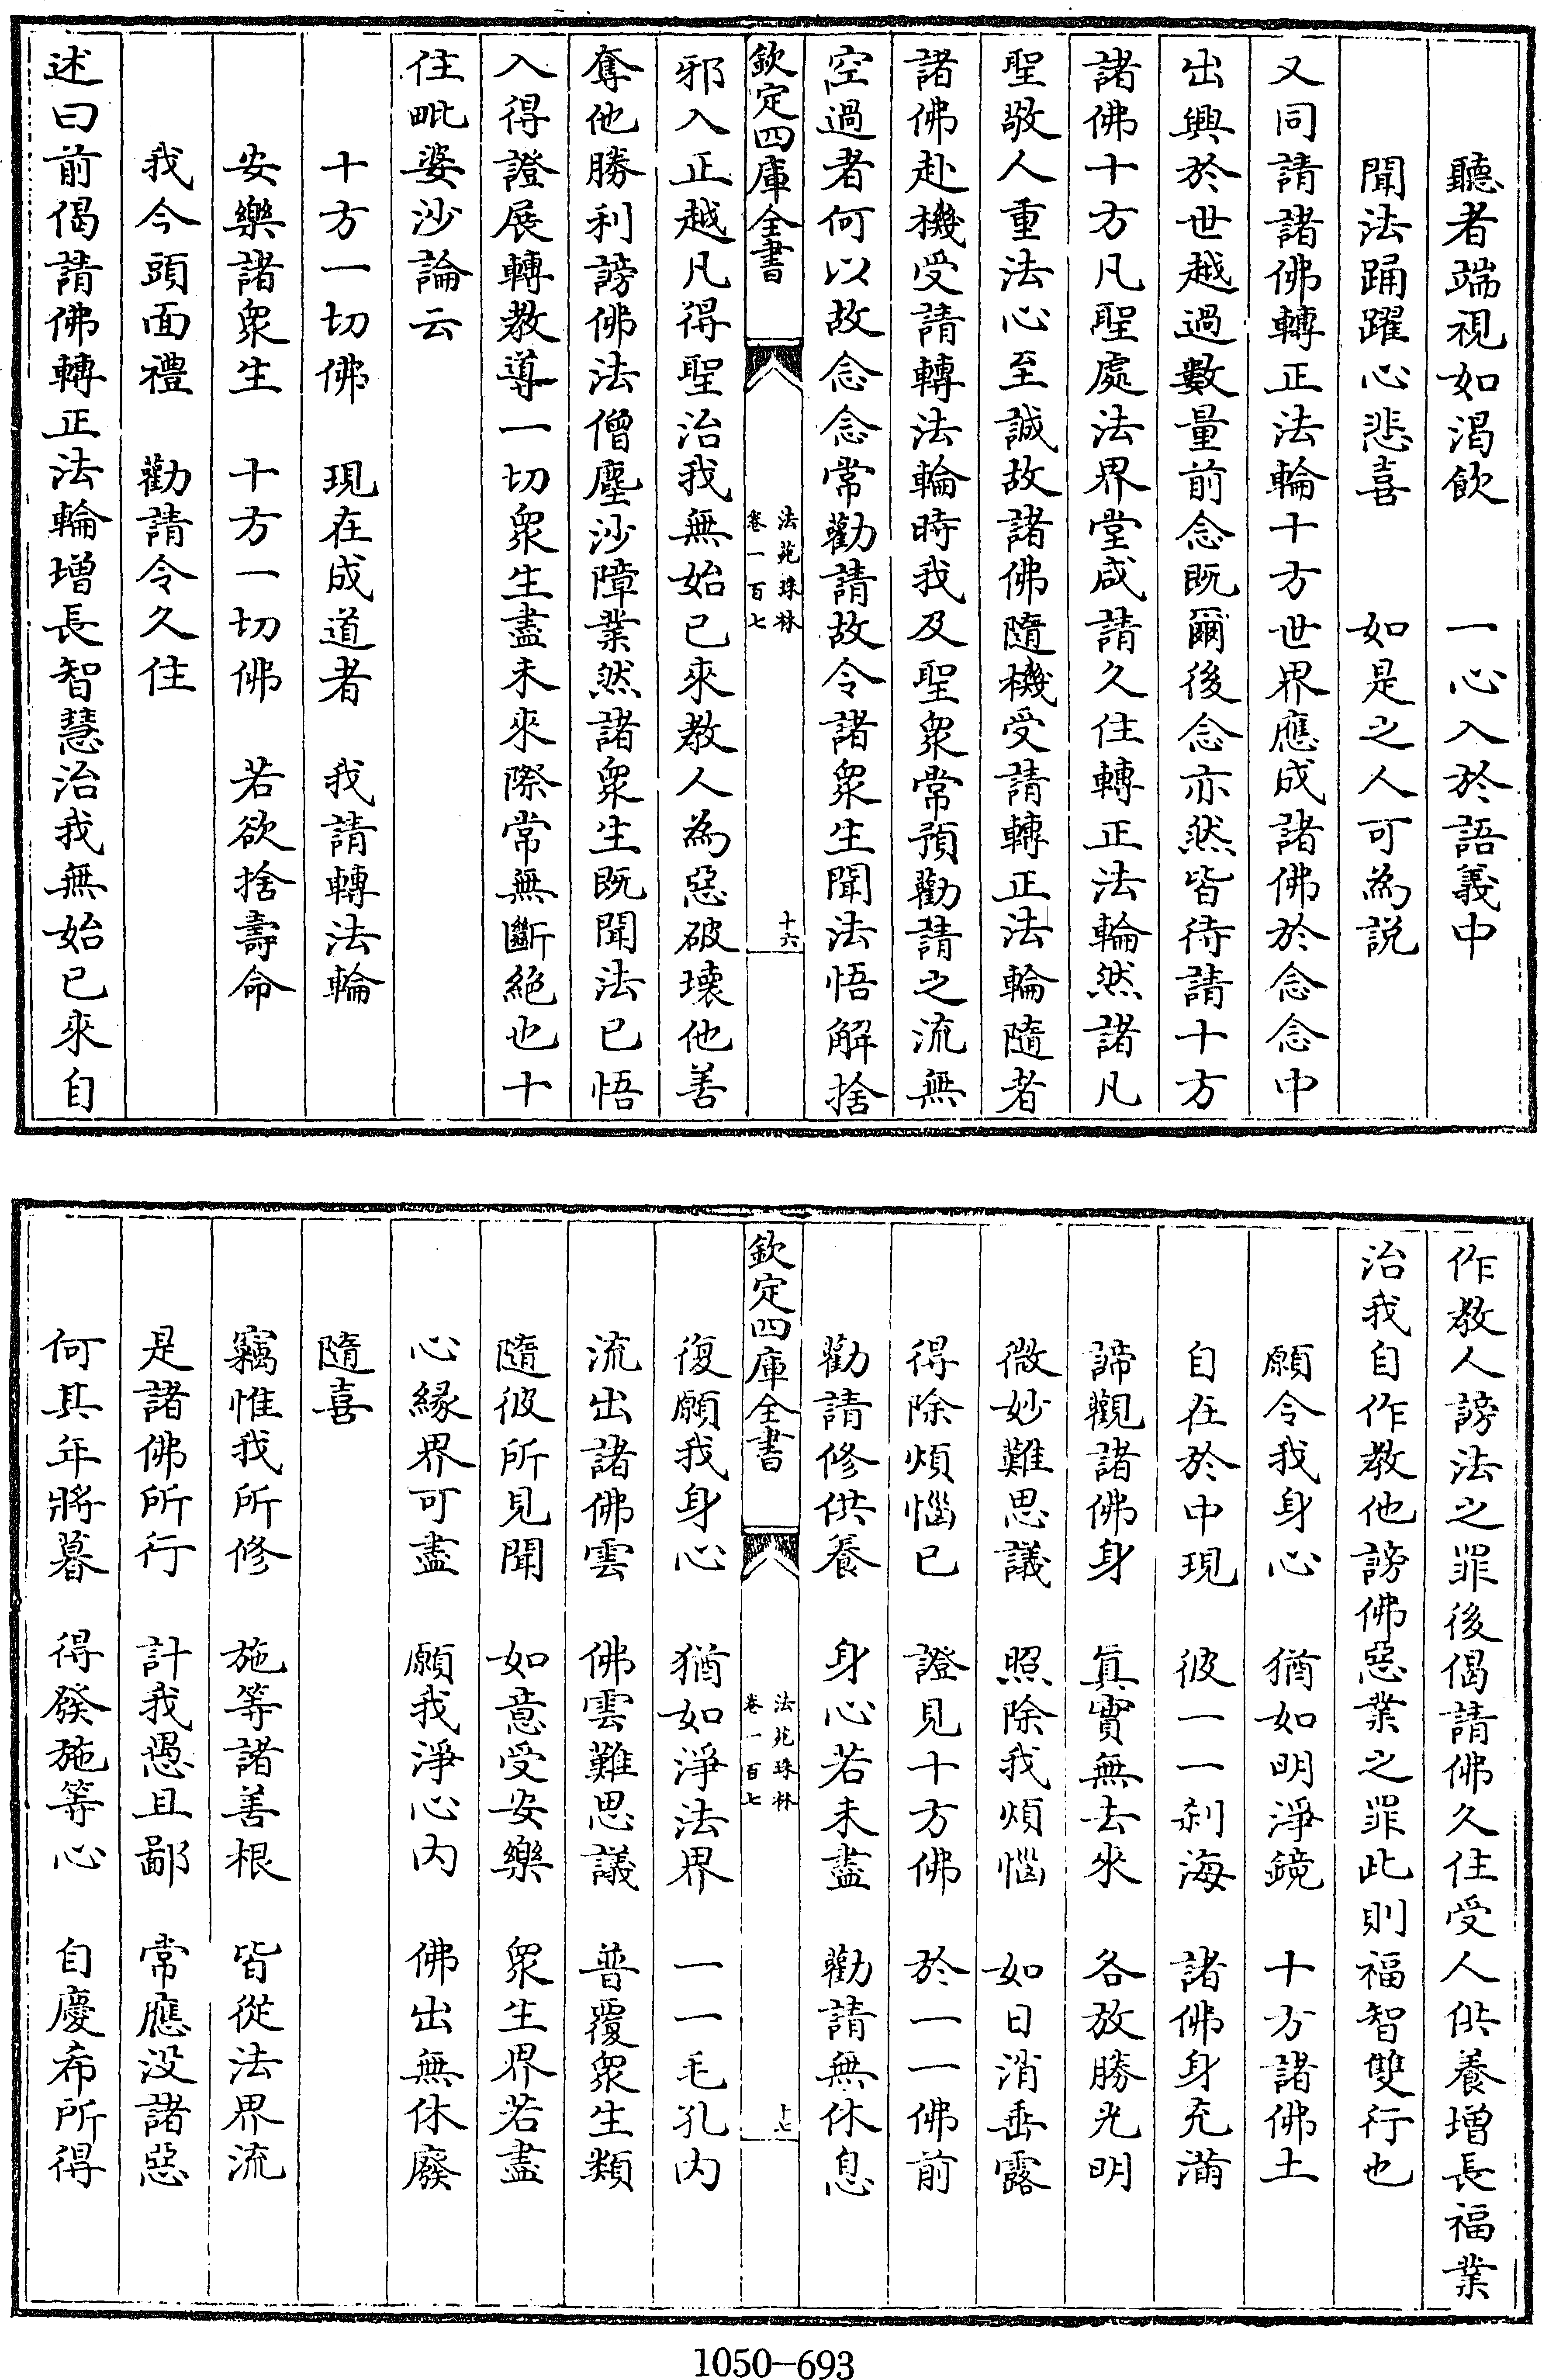 聽者端視如渴飲　一心入於語義中
聞法踊躍心悲喜　如是之人可為説
又同請諸佛轉正法輪十方世界應成諸佛於念念中
出興於世越過數量前念既爾後念亦然皆待請十方
諸佛十方凡聖處法界堂咸請久住轉正法輪然諸凡
聖敬人重法心至誠故諸佛隨機受請轉正法輪隨者
諸佛赴機受請轉法輪時我及聖衆常預勸請之流無
空過者何以故念念常勸請故令諸衆生聞法悟解捨
欽定四庫全書
法苑珠林
卷一百七
十六
邪入正越凡得聖治我無始已來教人為惡破壞他善
奪他勝利謗佛法僧塵沙障業然諸衆生既聞法已悟
入得證展轉教導一切衆生盡未來際常無斷絶也十
住毗婆沙論云
十方一切佛　現在成道者　我請轉法輪
安樂諸衆生　十方一切佛　若欲捨壽命
我今頭面禮　勸請令久住
述曰前偈請佛轉正法輪增長智慧治我無始已來自
作教人謗法之罪後偈請佛久住受人供養增長福業
治我自作教他謗佛惡業之罪此則福智雙行也
願令我身心　猶如明淨鏡　十方諸佛土
自在於中現　彼一一刹海　諸佛身充滿
諦觀諸佛身　真實無去來　各放勝光明
微妙難思議　照除我煩惱　如日消垂露
得除煩惱已　證見十方佛　於一一佛前
勸請修供養　身心若未盡　勸請無休息
欽定四庫全書
法苑珠林
卷一百七
十七
復願我身心　猶如淨法界　一一毛孔内
流出諸佛雲　佛雲難思議　普覆衆生類
隨彼所見聞　如意受安樂　衆生界若盡
心緣界可盡　願我淨心内　佛出無休廢
隨喜
竊惟我所修　施等諸善根　皆從法界流
是諸佛所行　計我愚且鄙　常應没諸惡
何其年將暮　得發施等心　自慶希所得
1050-693